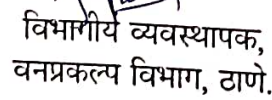 विभागीय व्यवस्थापक,
वनप्रकल्प विभाग, ठाणे.